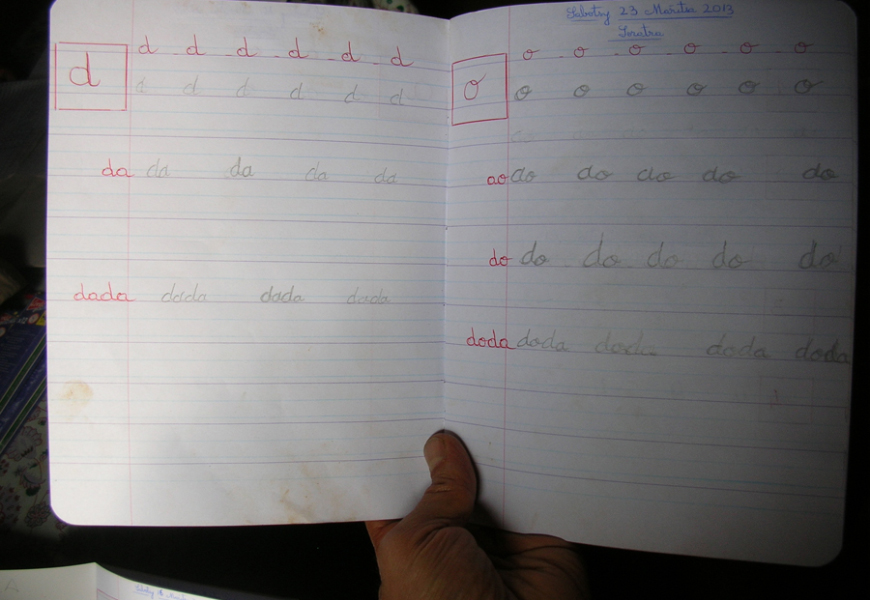 d d d d d d
d
d d d d d d
da da da da da
dada dada dada dada
Sabotsy 23 Maritsa 2013
Soratra
o o o o o o
o
o o o o o o
ao ao ao ao ao ao
do do do do do do
doda doda doda doda doda